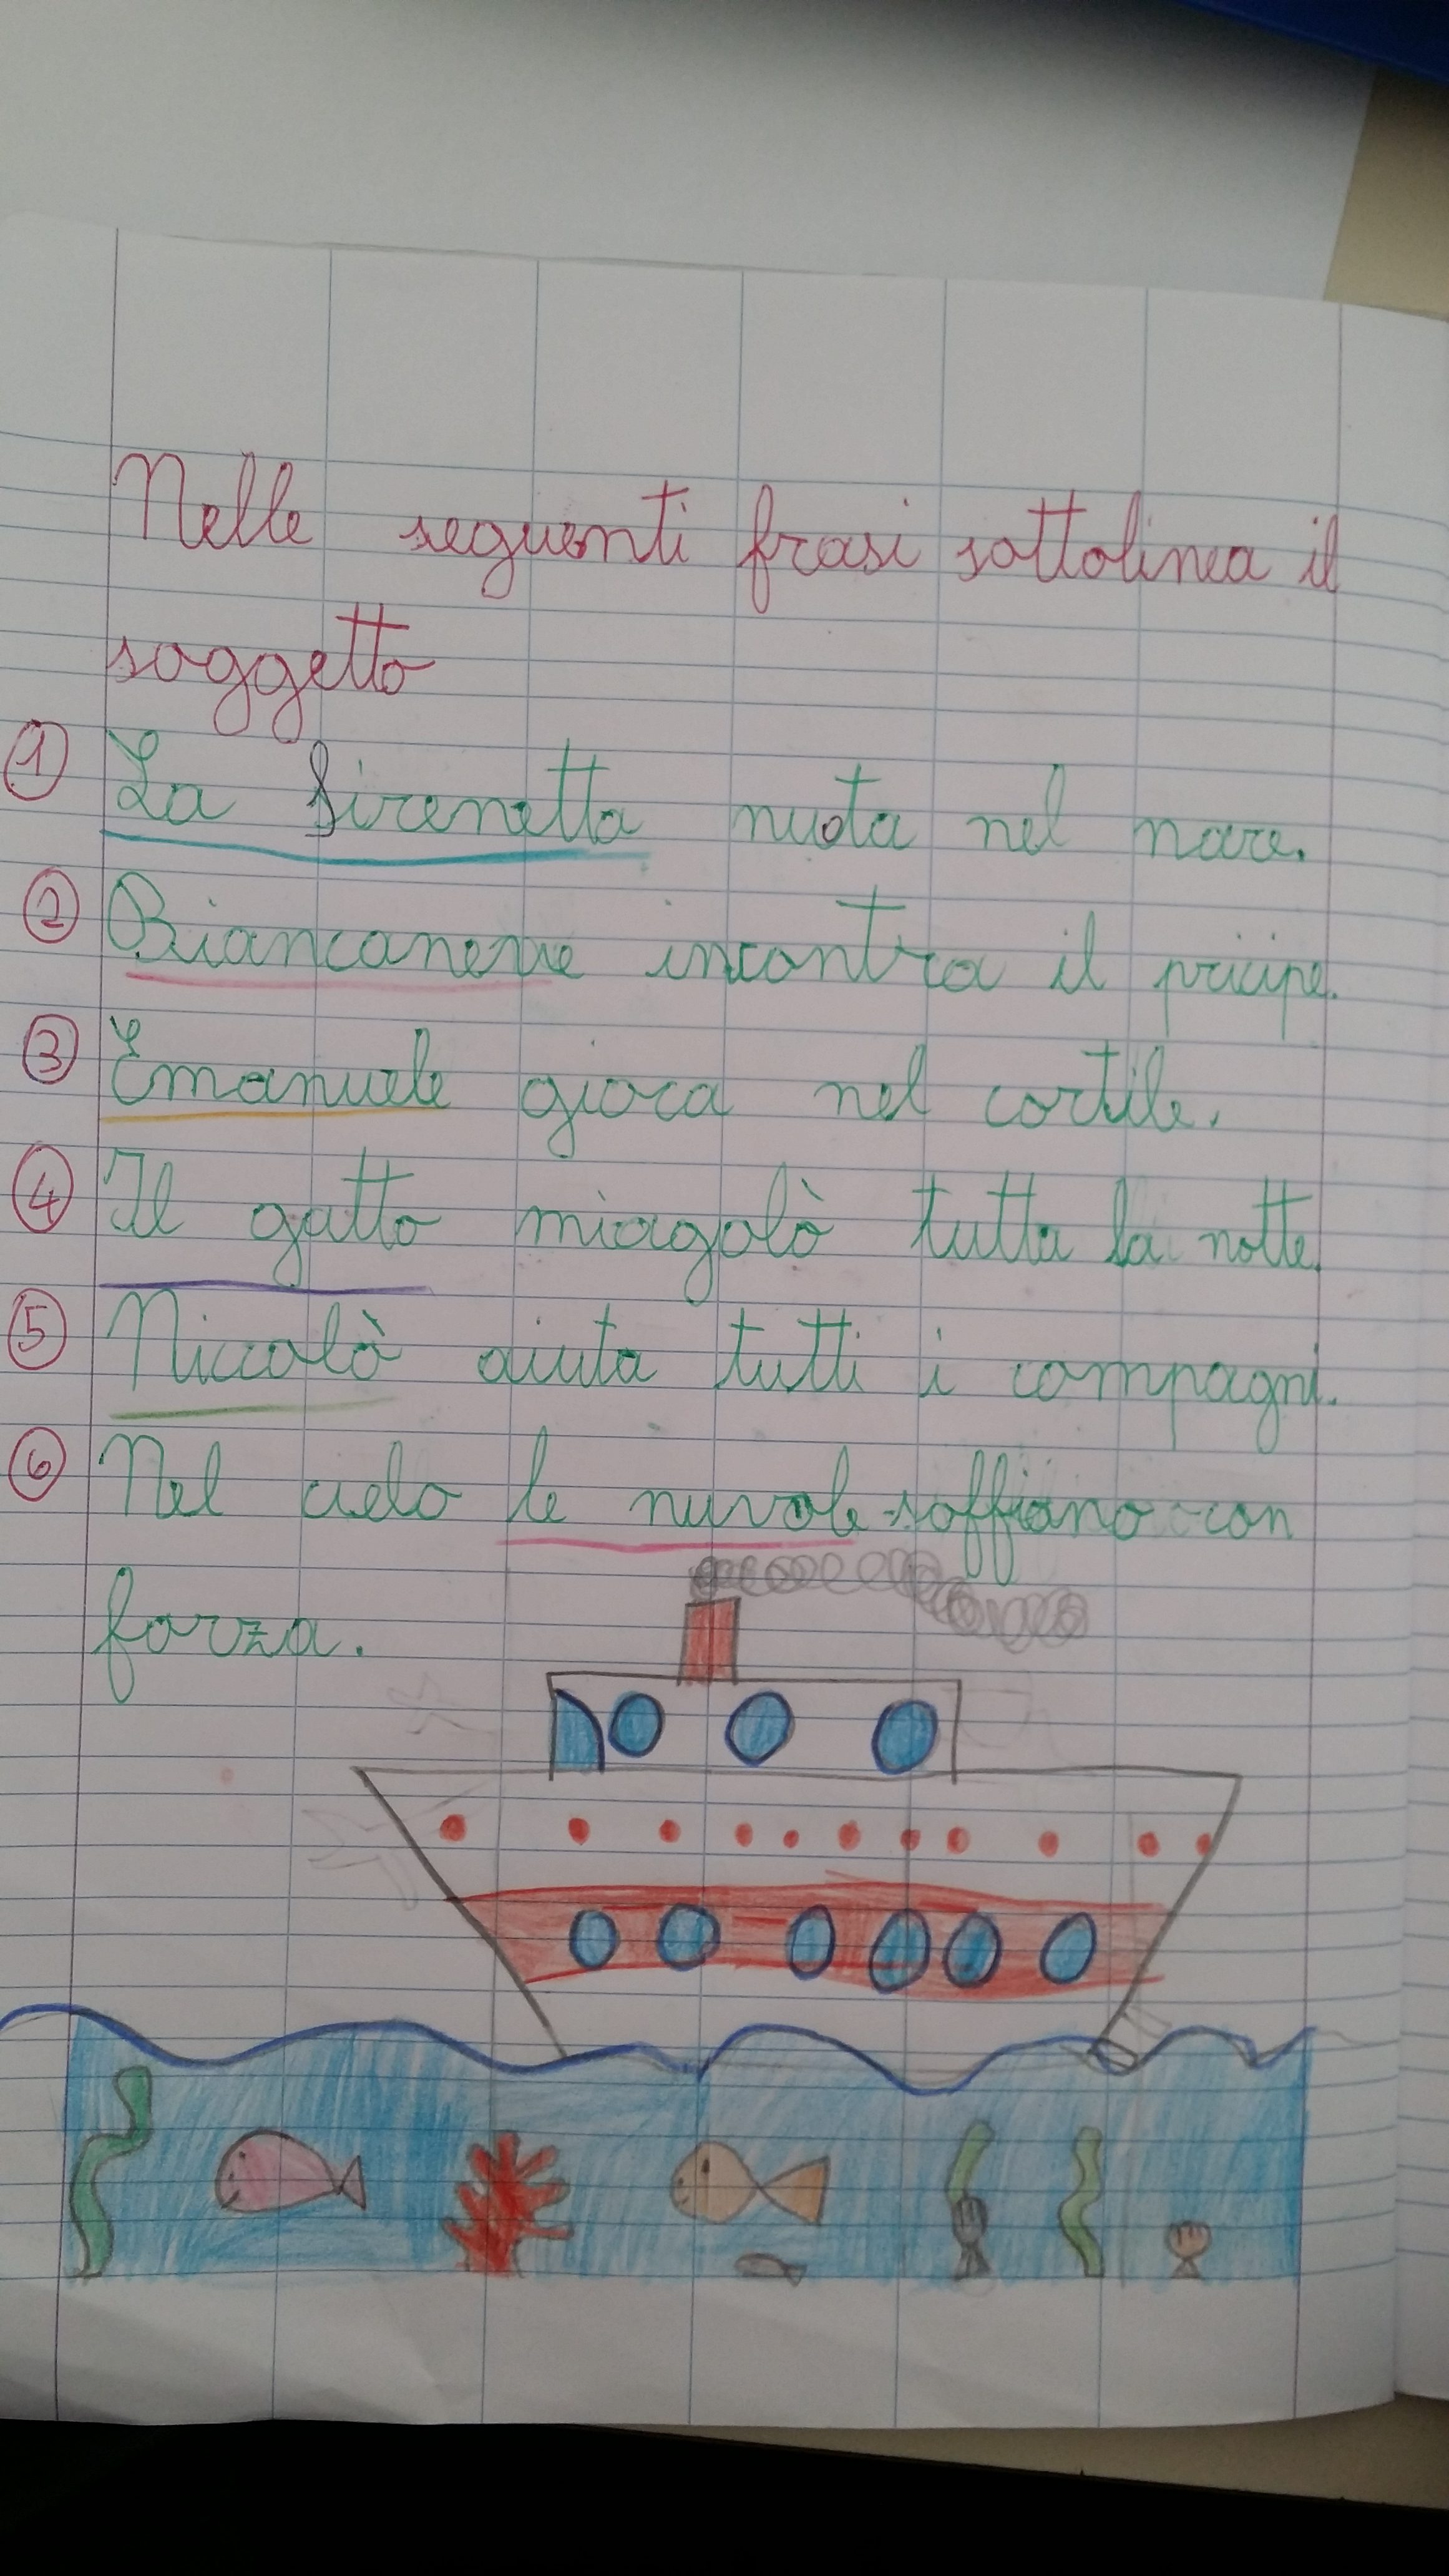 Nelle seguenti frasi sottolinea il
soggetto
1 La Sirenetta nuota nel mare.
2 Biancaneve incontra il pricipe.
3 Emanuele gioca nel cortile.
4 Il gatto miagolò tutta la notte.
5 Niccolò aiuta tutti i compagni.
6 Nel cielo le nuvole soffiano con
forza.